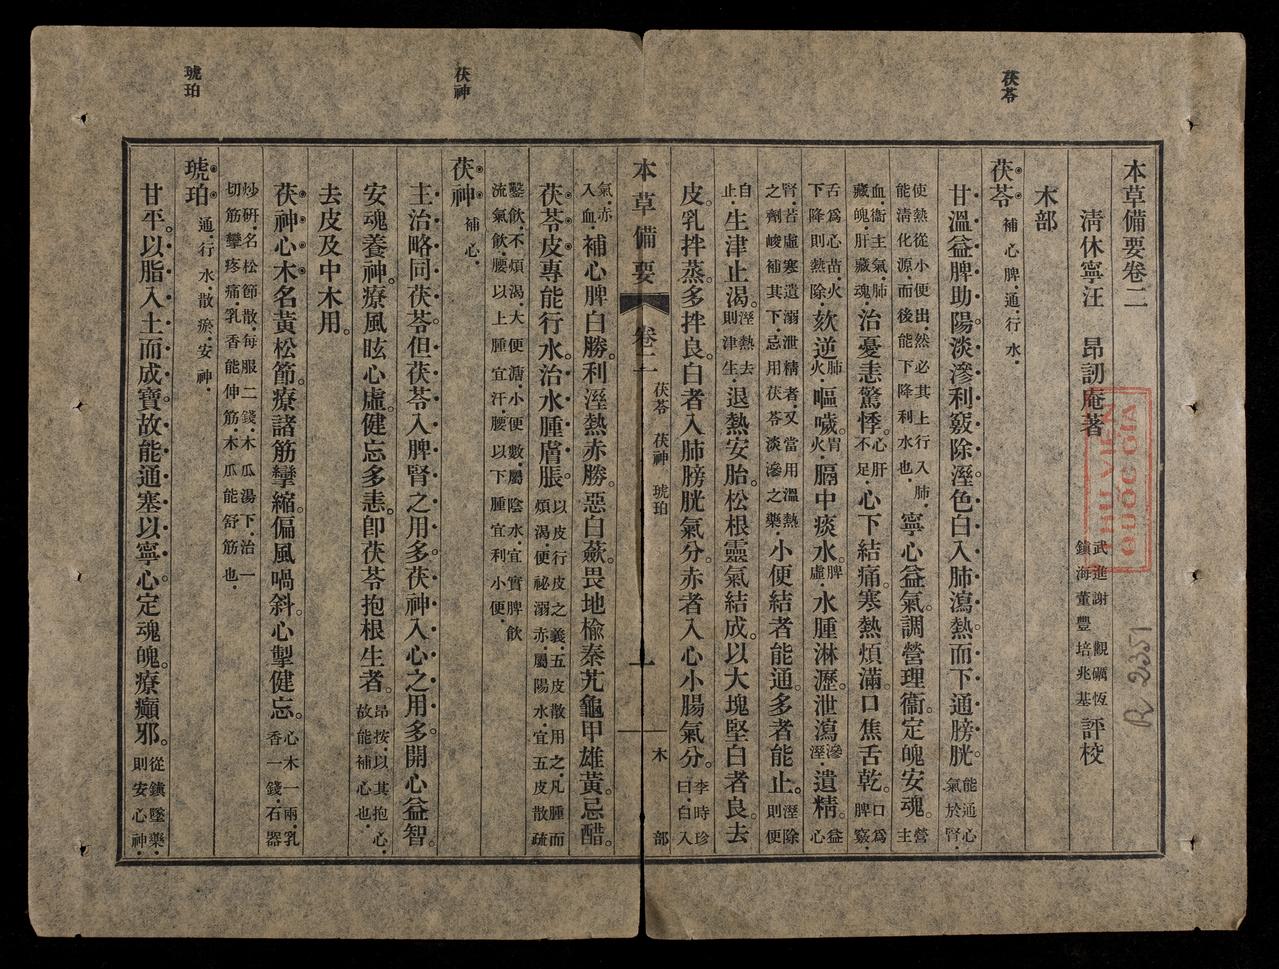 茯苓
本草備要卷二
清休寧汪　昂訒庵著
武進謝　觀礪恆
鎮海董豐培兆基
評校
木部
茯苓補心脾．通．行水．
甘溫益脾助陽淡滲利竅除溼色白入肺瀉熱而下通膀胱。能通心氣於腎．
使熱從小便出．然必其上行入肺．能清化源而後能下降利水也．寧心益氣。調營理衞。定魄安魂。營主
血．衞主氣．肺藏魄．肝藏魂．治憂恚驚悸。心肝不足．心下結痛。寒熱煩滿。口焦舌乾。口爲脾竅．
舌爲心苗．火下降則熱除．欬逆。肺火．嘔噦。胃火．膈中痰水。脾虛．水腫淋瀝。泄瀉。滲溼．遺精。益心
腎．若虛寒遺溺泄精者．又當用溫熱之劑峻補其下．忌用茯苓淡滲之藥．小便結者能通。多者能止。溼除則便
自止．生津止渴。溼熱去則津生．退熱安胎。松根靈氣結成。以大塊堅白者良。去
皮。乳拌蒸。多拌良。白者入肺膀胱氣分。赤者入心小腸氣分。李時珍曰．白入
本草備要
卷二
茯苓　茯神　琥珀
十一
木　　部
氣．赤入血．補心脾白勝。利溼熱赤勝。惡白蘞。畏地榆秦艽龜甲雄黃。忌醋。
茯苓皮專能行水。治水腫膚脹。以皮行皮之義．五皮散用之．凡腫而煩渴．便祕溺赤．屬陽水．宜五皮散疏
鑿飲．不煩渴．大便溏．小便數．屬陰水．宜實脾飲流氣飲．腰以上腫宜汗．腰以下腫宜利小便．
茯神
茯神補心．
主治略同茯苓。但茯苓入脾腎之用多。茯神入心之用多。開心益智。
安魂養神。療風眩心虛。健忘多恚。卽茯苓抱根生者。昂按．以其抱心．故能補心也．
去皮及中木用。
茯神心木名黃松節。療諸筋攣縮。偏風喎斜。心掣健忘。心木一兩．乳香一錢．石器
炒研．名松節散．每服二錢．木瓜湯下．治一切筋攣疼痛．乳香能伸筋．木瓜能舒筋也．
琥珀
琥珀通．行水．散瘀．安神．
甘平。以脂入土而成寶。故能通塞以寧心。定魂魄。療癲邪。從鎮墜藥．則安心神．
THƯ VIỆN
QUỐC GIA
R 2351